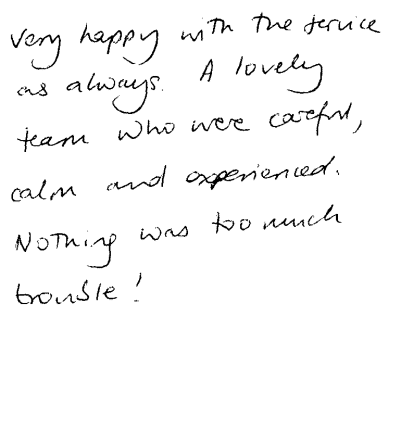 Very happy with the service
as always. A lovely
team who were careful,
calm and experienced.
Nothing was too much
trouble!